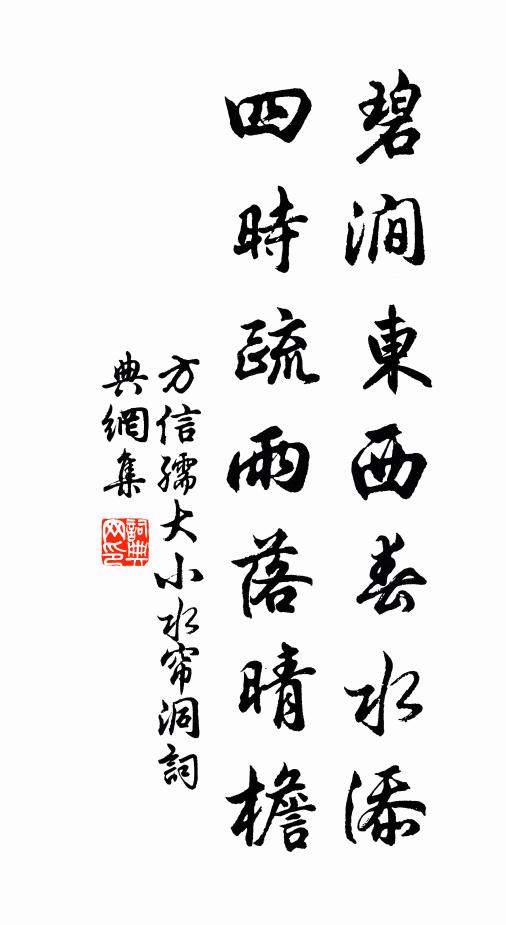 碧澗東西春水添
四時疏雨落晴檐
方信孺大小水帘洞詞
典網集
詞典网印